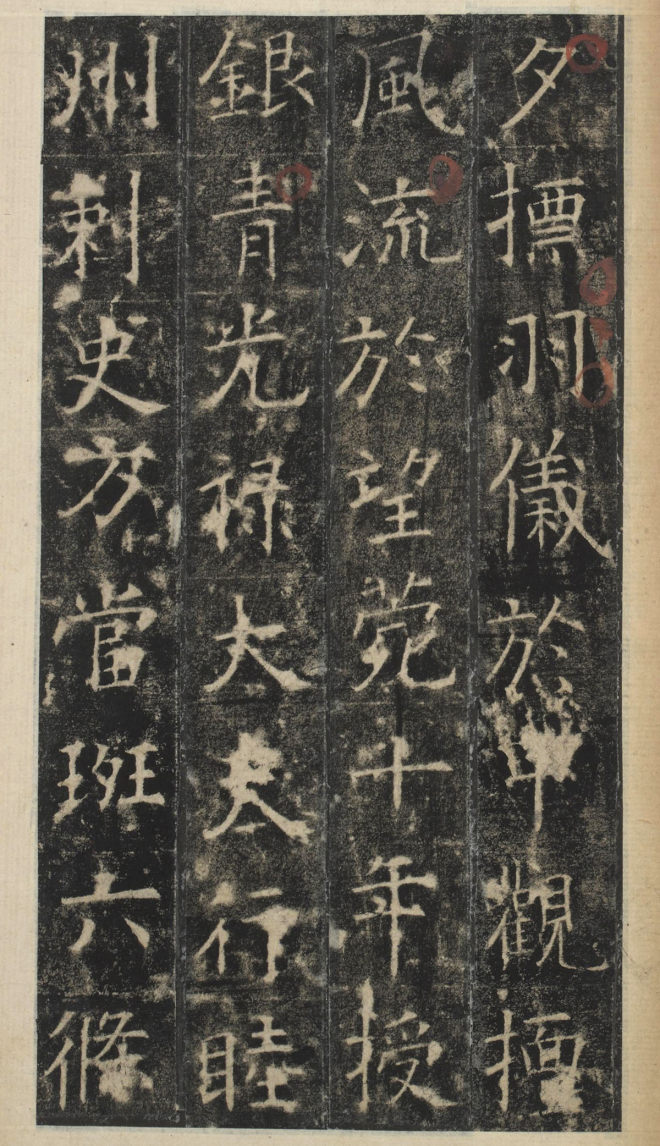 夕摽羽儀於甲觀摽
風流於望菀十年授
銀青光祿大夫行睦
州刺史方當班六條